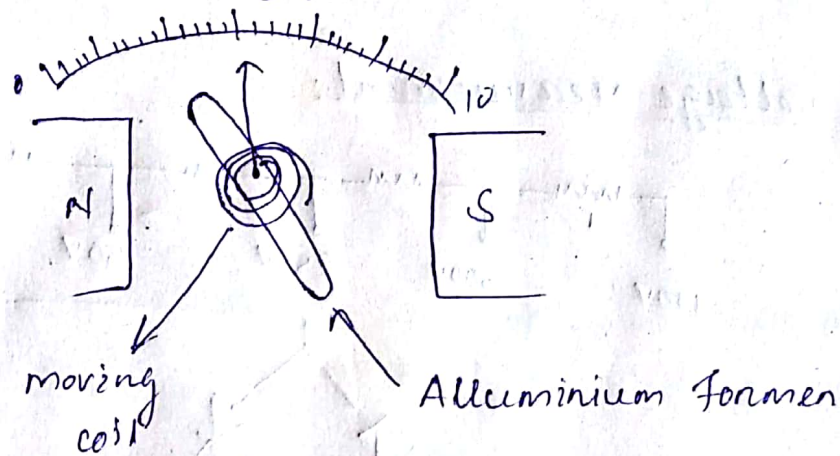 0
10
N
S
moving
coil
Alluminium Former